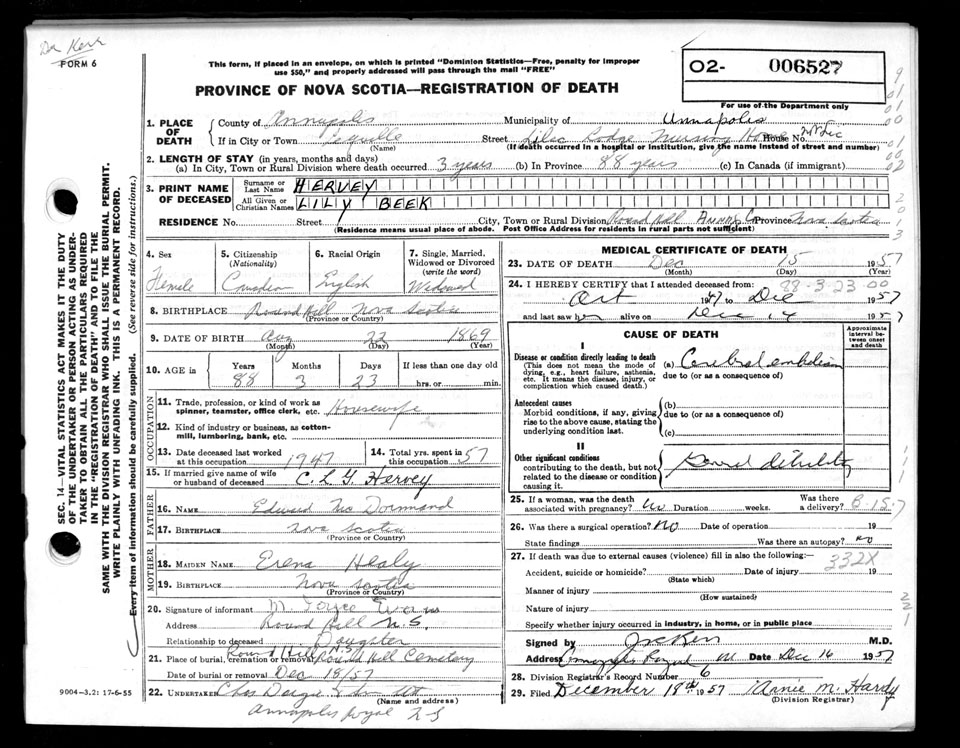 Dr Kerr
FORM 6
This form, if placed in an envelope, on which is printed "Dominion Statistics—Free, penalty for improper
use $50," and properly addressed will pass through the mail "FREE"
PROVINCE OF NOVA SCOTIA—REGISTRATION OF DEATH
O2- 006527
For use of the Department only
1. PLACE OF DEATH
County of Annapolis Municipality of Annapolis
If in City or Town Street Lilac Lodge Nursing Home House No.
(Name) (If death occurred in a hospital or institution, give the name instead of street and number)
2. LENGTH OF STAY (in years, months and days)
(a) In City, Town or Rural Division where death occurred 3 years (b) In Province 88 years (c) In Canada (if immigrant)
3. PRINT NAME OF DECEASED
Surname or Last Name HERVEY
All Given or Christian Names LILY BEEK
RESIDENCE No. Street City, Town or Rural Division Round Hill Annap. Co Province Nova Scotia
(Residence means usual place of abode. Post Office Address for residents in rural parts not sufficient)
4. Sex
Female
5. Citizenship
(Nationality)
Canadian
6. Racial Origin
English
7. Single, Married,
Widowed or Divorced
(write the word)
Widowed
8. BIRTHPLACE Round Hill Nova Scotia
(Province or Country)
9. DATE OF BIRTH Aug 22 1869
(Month) (Day) (Year)
10. AGE in Years Months Days If less than one day old
88 3 23 hrs. or min.
OCCUPATION
11. Trade, profession, or kind of work as
spinner, teamster, office clerk, etc. Housewife
12. Kind of industry or business, as cotton-
mill, lumbering, bank, etc.
13. Date deceased last worked
at this occupation 1947
14. Total yrs. spent in
this occupation 57
15. If married give name of wife
or husband of deceased C. L. G. Hervey
FATHER
16. NAME Edward Mc Dormand
17. BIRTHPLACE Nova Scotia
(Province or Country)
MOTHER
18. MAIDEN NAME Erena Healy
19. BIRTHPLACE Nova Scotia
(Province or Country)
20. Signature of informant M. Joyce Evans
Address Round Hill N.S.
Relationship to deceased Daughter
Round Hill N.S.
21. Place of burial, cremation or removal Round Hill Cemetery
Date of burial or removal Dec 18/57
22. UNDERTAKER
(Name and address)
Annapolis Royal N S
9004-3.2: 17-6-55
MEDICAL CERTIFICATE OF DEATH
23. DATE OF DEATH Dec 15 1957
(Month) (Day) (Year)
24. I HEREBY CERTIFY that I attended deceased from: 88-3-23 00
Oct 19 to Dec 1957
and last saw her alive on Dec 14 1957
CAUSE OF DEATH
Approximate interval between onset and death
I
Disease or condition directly leading to death
(This does not mean the mode of dying, e.g., heart failure, asthenia, etc. It means the disease, injury, or complication which caused death.)
(a) Cerebral embolism
due to (or as a consequence of)
Antecedent causes
Morbid conditions, if any, giving rise to the above cause, stating the underlying condition last.
(b)
due to (or as a consequence of)
(c)
II
Other significant conditions
contributing to the death, but not related to the disease or condition causing it.
General debility
25. If a woman, was the death
associated with pregnancy? No Duration weeks. Was there
a delivery? B-15-7
26. Was there a surgical operation? No Date of operation 19
State findings Was there an autopsy? No
27. If death was due to external causes (violence) fill in also the following:— 332X
Accident, suicide or homicide? Date of injury 19
(State which)
Manner of injury
(How sustained)
Nature of injury
Specify whether injury occurred in industry, in home, or in public place
Signed by M.D.
Address Annapolis Royal Date Dec 16 1957
28. Division Registrar's Record Number 6
29. Filed December 18th 1957 Annie M. Hardy
(Division Registrar)
SEC. 14—VITAL STATISTICS ACT MAKES IT THE DUTY
OF THE UNDERTAKER OR PERSON ACTING AS UNDER-
TAKER TO OBTAIN ALL THE PARTICULARS REQUIRED
IN THE "REGISTRATION OF DEATH" AND TO FILE THE
SAME WITH THE DIVISION REGISTRAR WHO SHALL ISSUE THE BURIAL PERMIT.
WRITE PLAINLY WITH UNFADING INK. THIS IS A PERMANENT RECORD.
Every item of information should be carefully supplied. (See reverse side for instructions.)